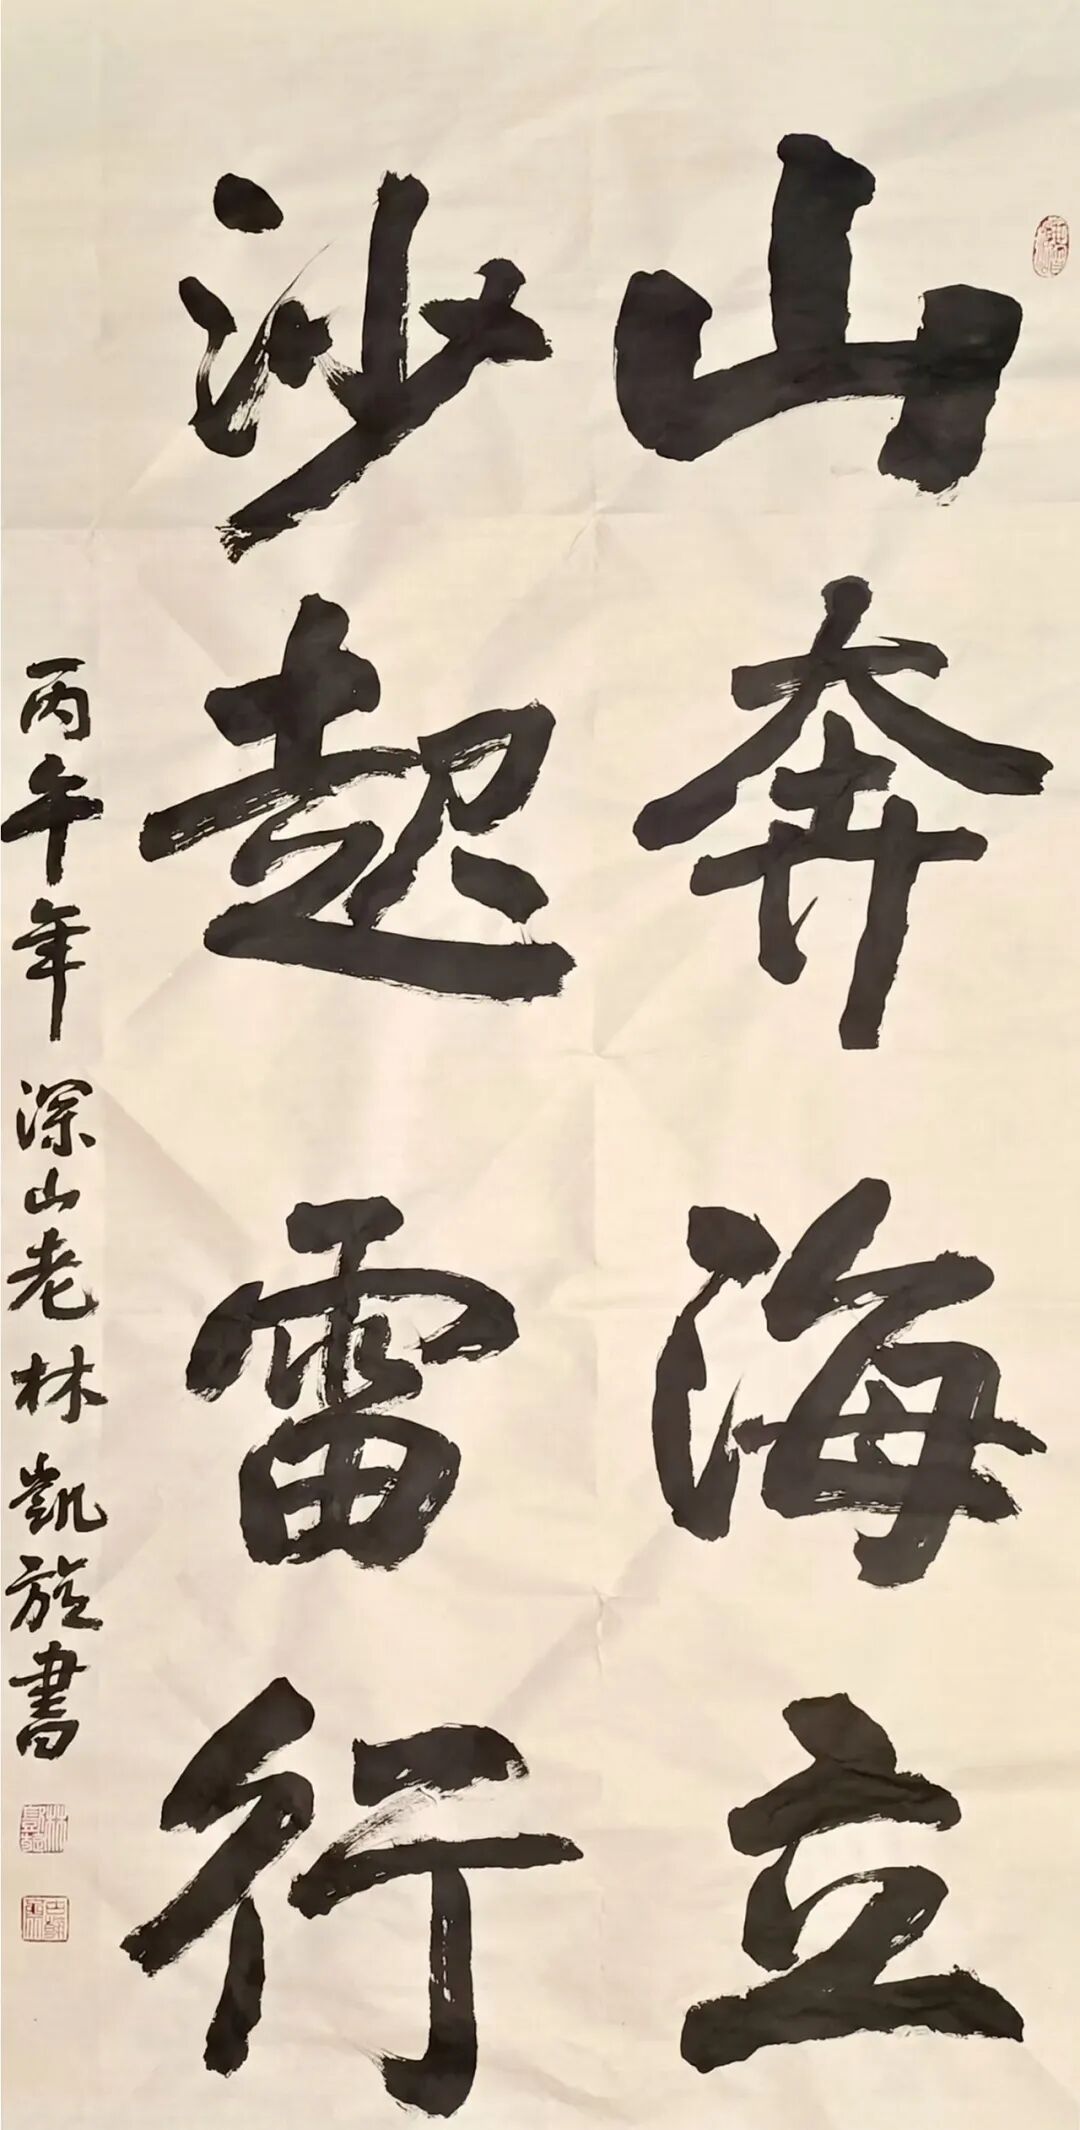 山奔海立
沙起雷行
丙午年深山老林凯旋書